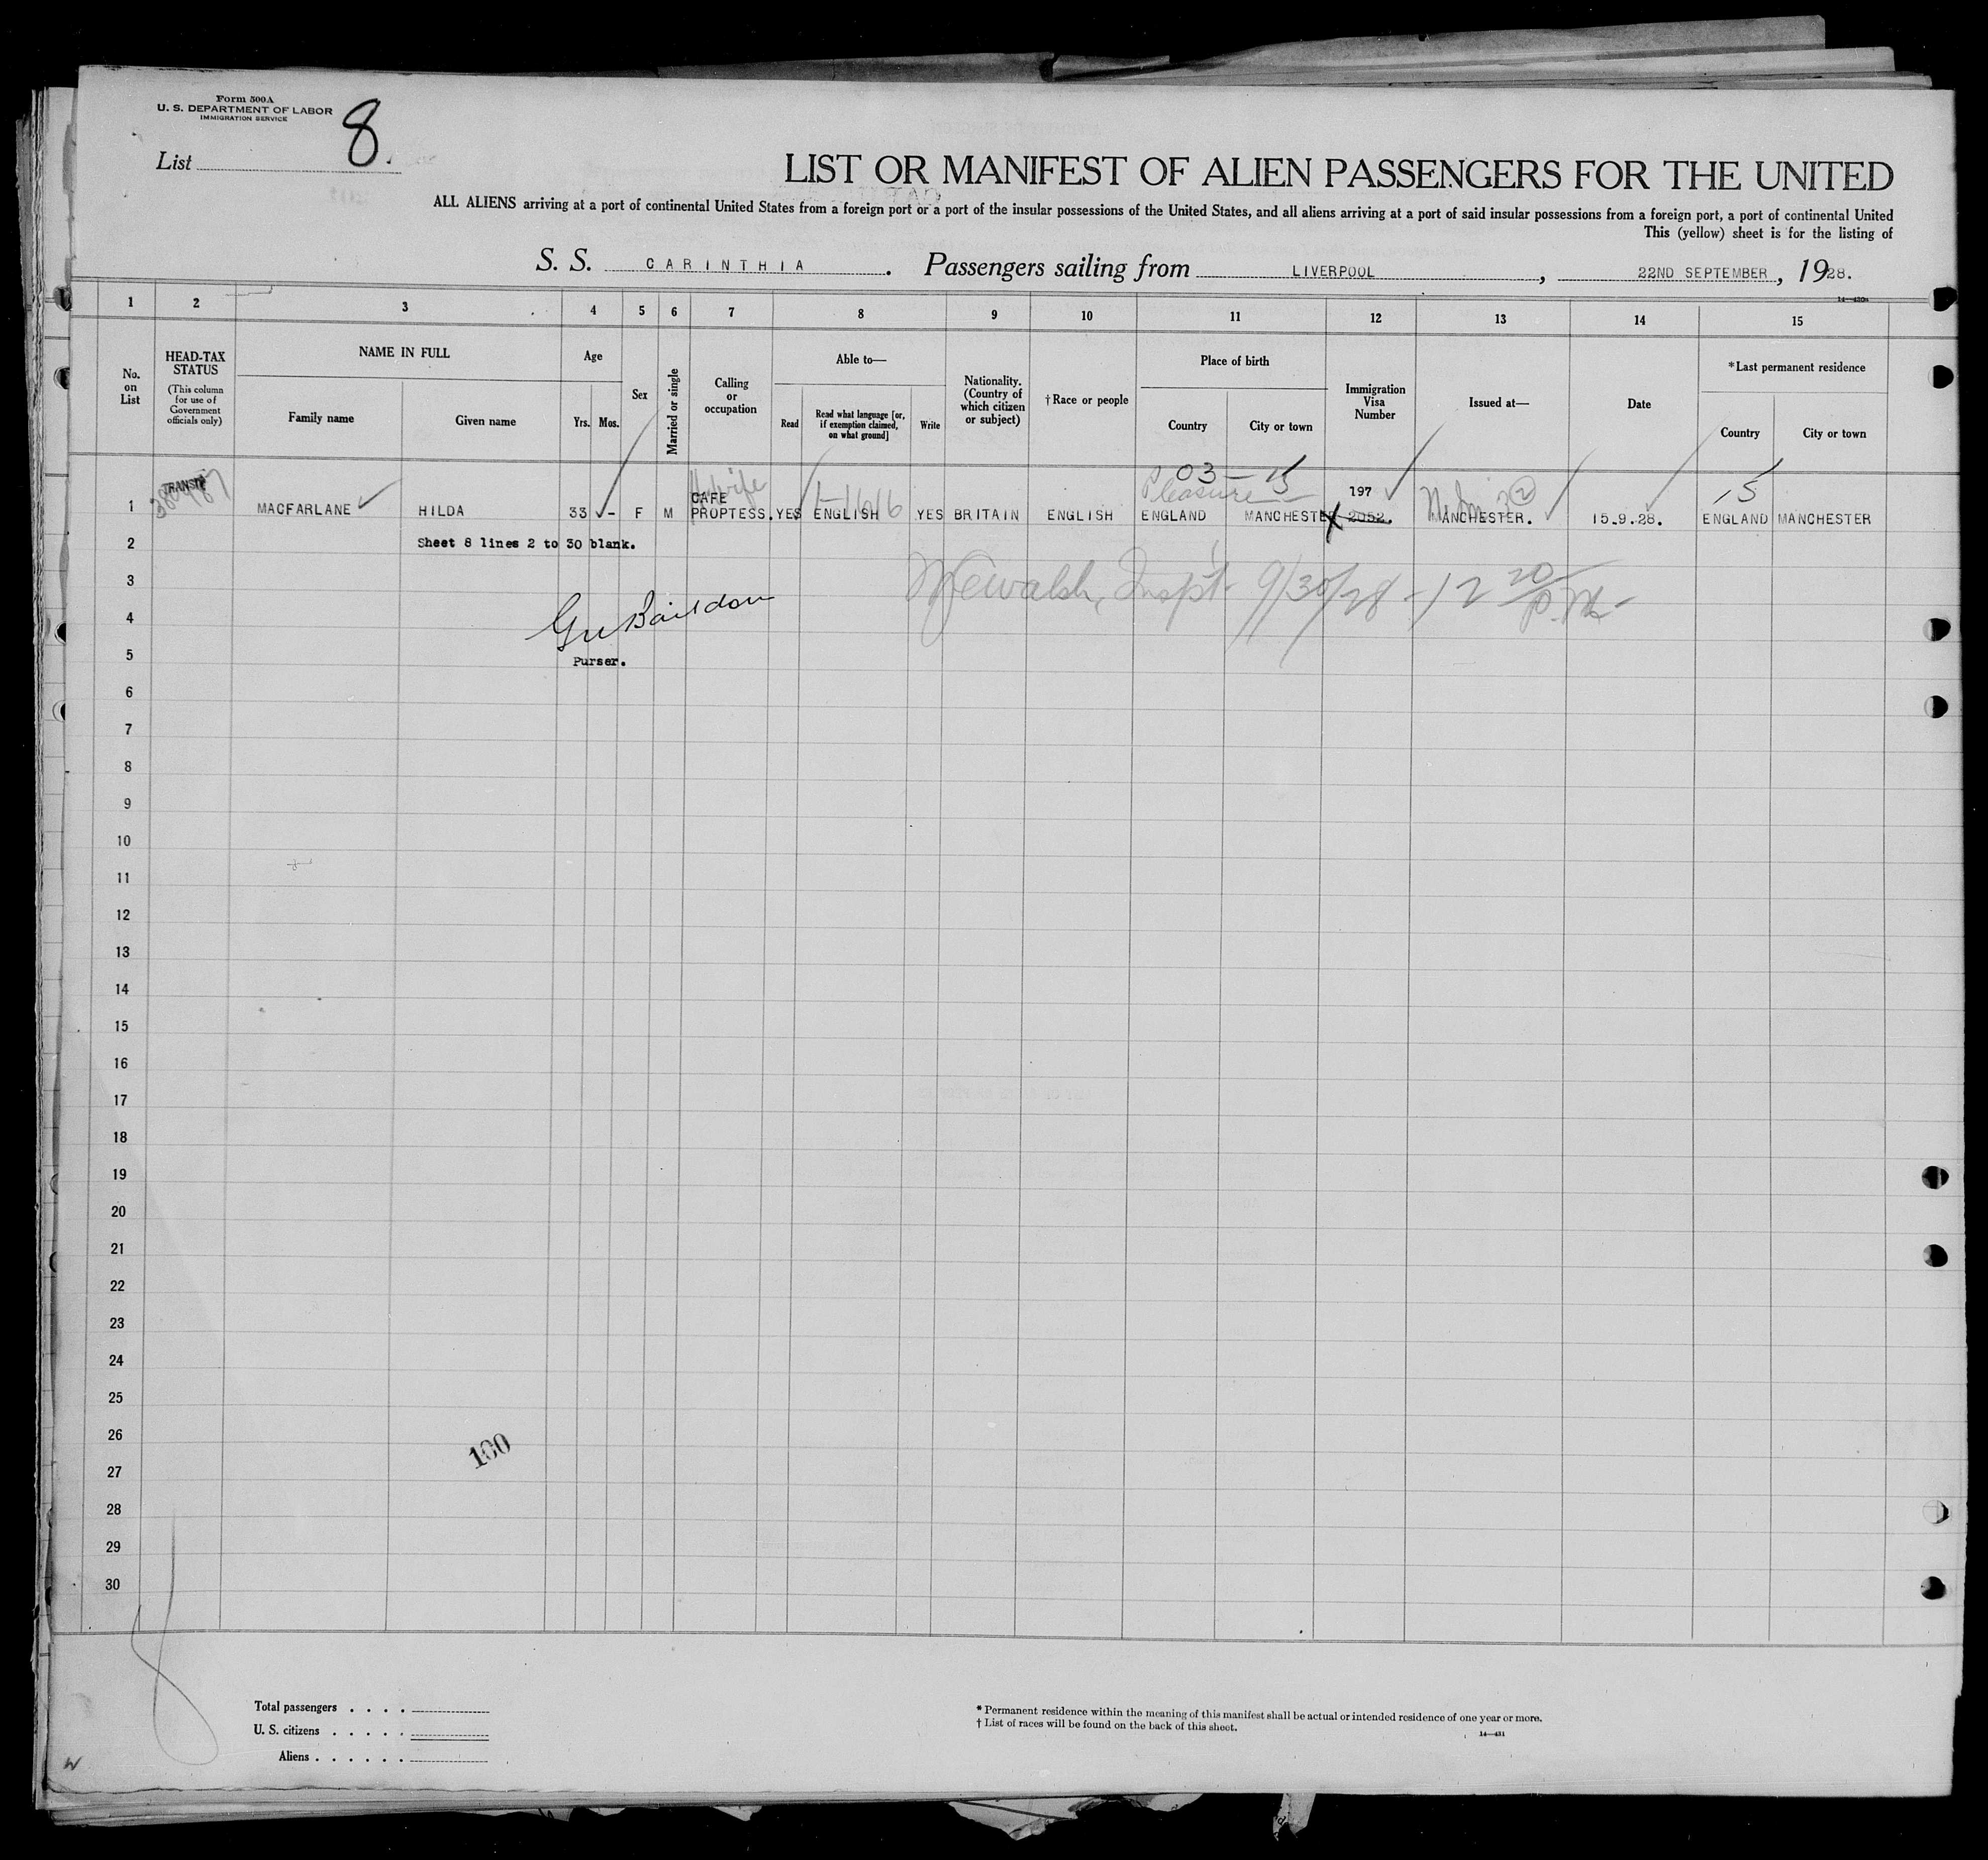 Form 500A
U. S. DEPARTMENT OF LABOR
IMMIGRATION SERVICE
List 8.
LIST OR MANIFEST OF ALIEN PASSENGERS FOR THE UNITED
ALL ALIENS arriving at a port of continental United States from a foreign port or a port of the insular possessions of the United States, and all aliens arriving at a port of said insular possessions from a foreign port, a port of continental United
This (yellow) sheet is for the listing of
S. S. CARINTHIA. Passengers sailing from LIVERPOOL, 22ND SEPTEMBER, 1928.
1 2 3 4 5 6 7 8 9 10 11 12 13 14 15
No. on List
HEAD-TAX STATUS
(This column for use of Government officials only)
NAME IN FULL
Family name Given name
Age
Yrs. Mos.
Sex
Married or single
Calling or occupation
Able to—
Read Read what language [or, if exemption claimed, on what ground] Write
Nationality. (Country of which citizen or subject)
†Race or people
Place of birth
Country City or town
Immigration Visa Number
Issued at—
Date
*Last permanent residence
Country City or town
TRANSIT
03 — 15
Pleasure
H'wife
CAFE
197
15
1 MACFARLANE HILDA 33 - F M PROPTESS. YES ENGLISH YES BRITAIN ENGLISH ENGLAND MANCHESTER 2052. MANCHESTER. 15.9.28. ENGLAND MANCHESTER
2 Sheet 8 lines 2 to 30 blank.
3
Walsh, Inspt- 9/30/28 - 12 20 P.M-
4
Bairdon
5 Purser.
6
7
8
9
10
11
12
13
14
15
16
17
18
19
20
21
22
23
24
25
26
100
27
28
29
30
Total passengers . . . .
U. S. citizens . . . . .
Aliens . . . . . .
* Permanent residence within the meaning of this manifest shall be actual or intended residence of one year or more.
† List of races will be found on the back of this sheet.
14—431